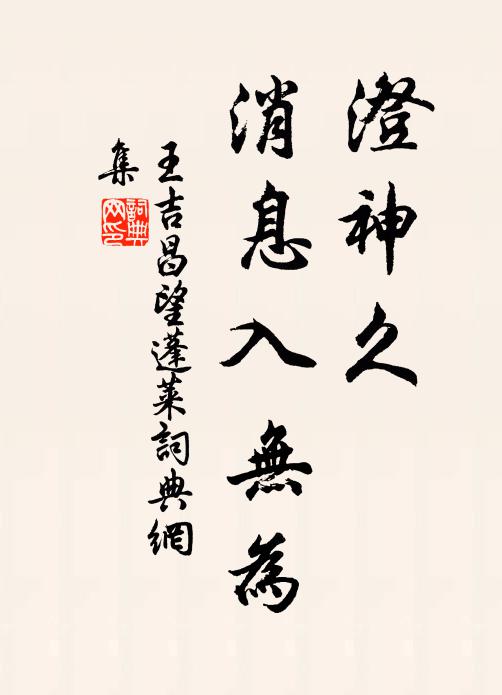 澄神久
消息入無為
王吉昌望蓬萊詞典網
集
詞典
网印